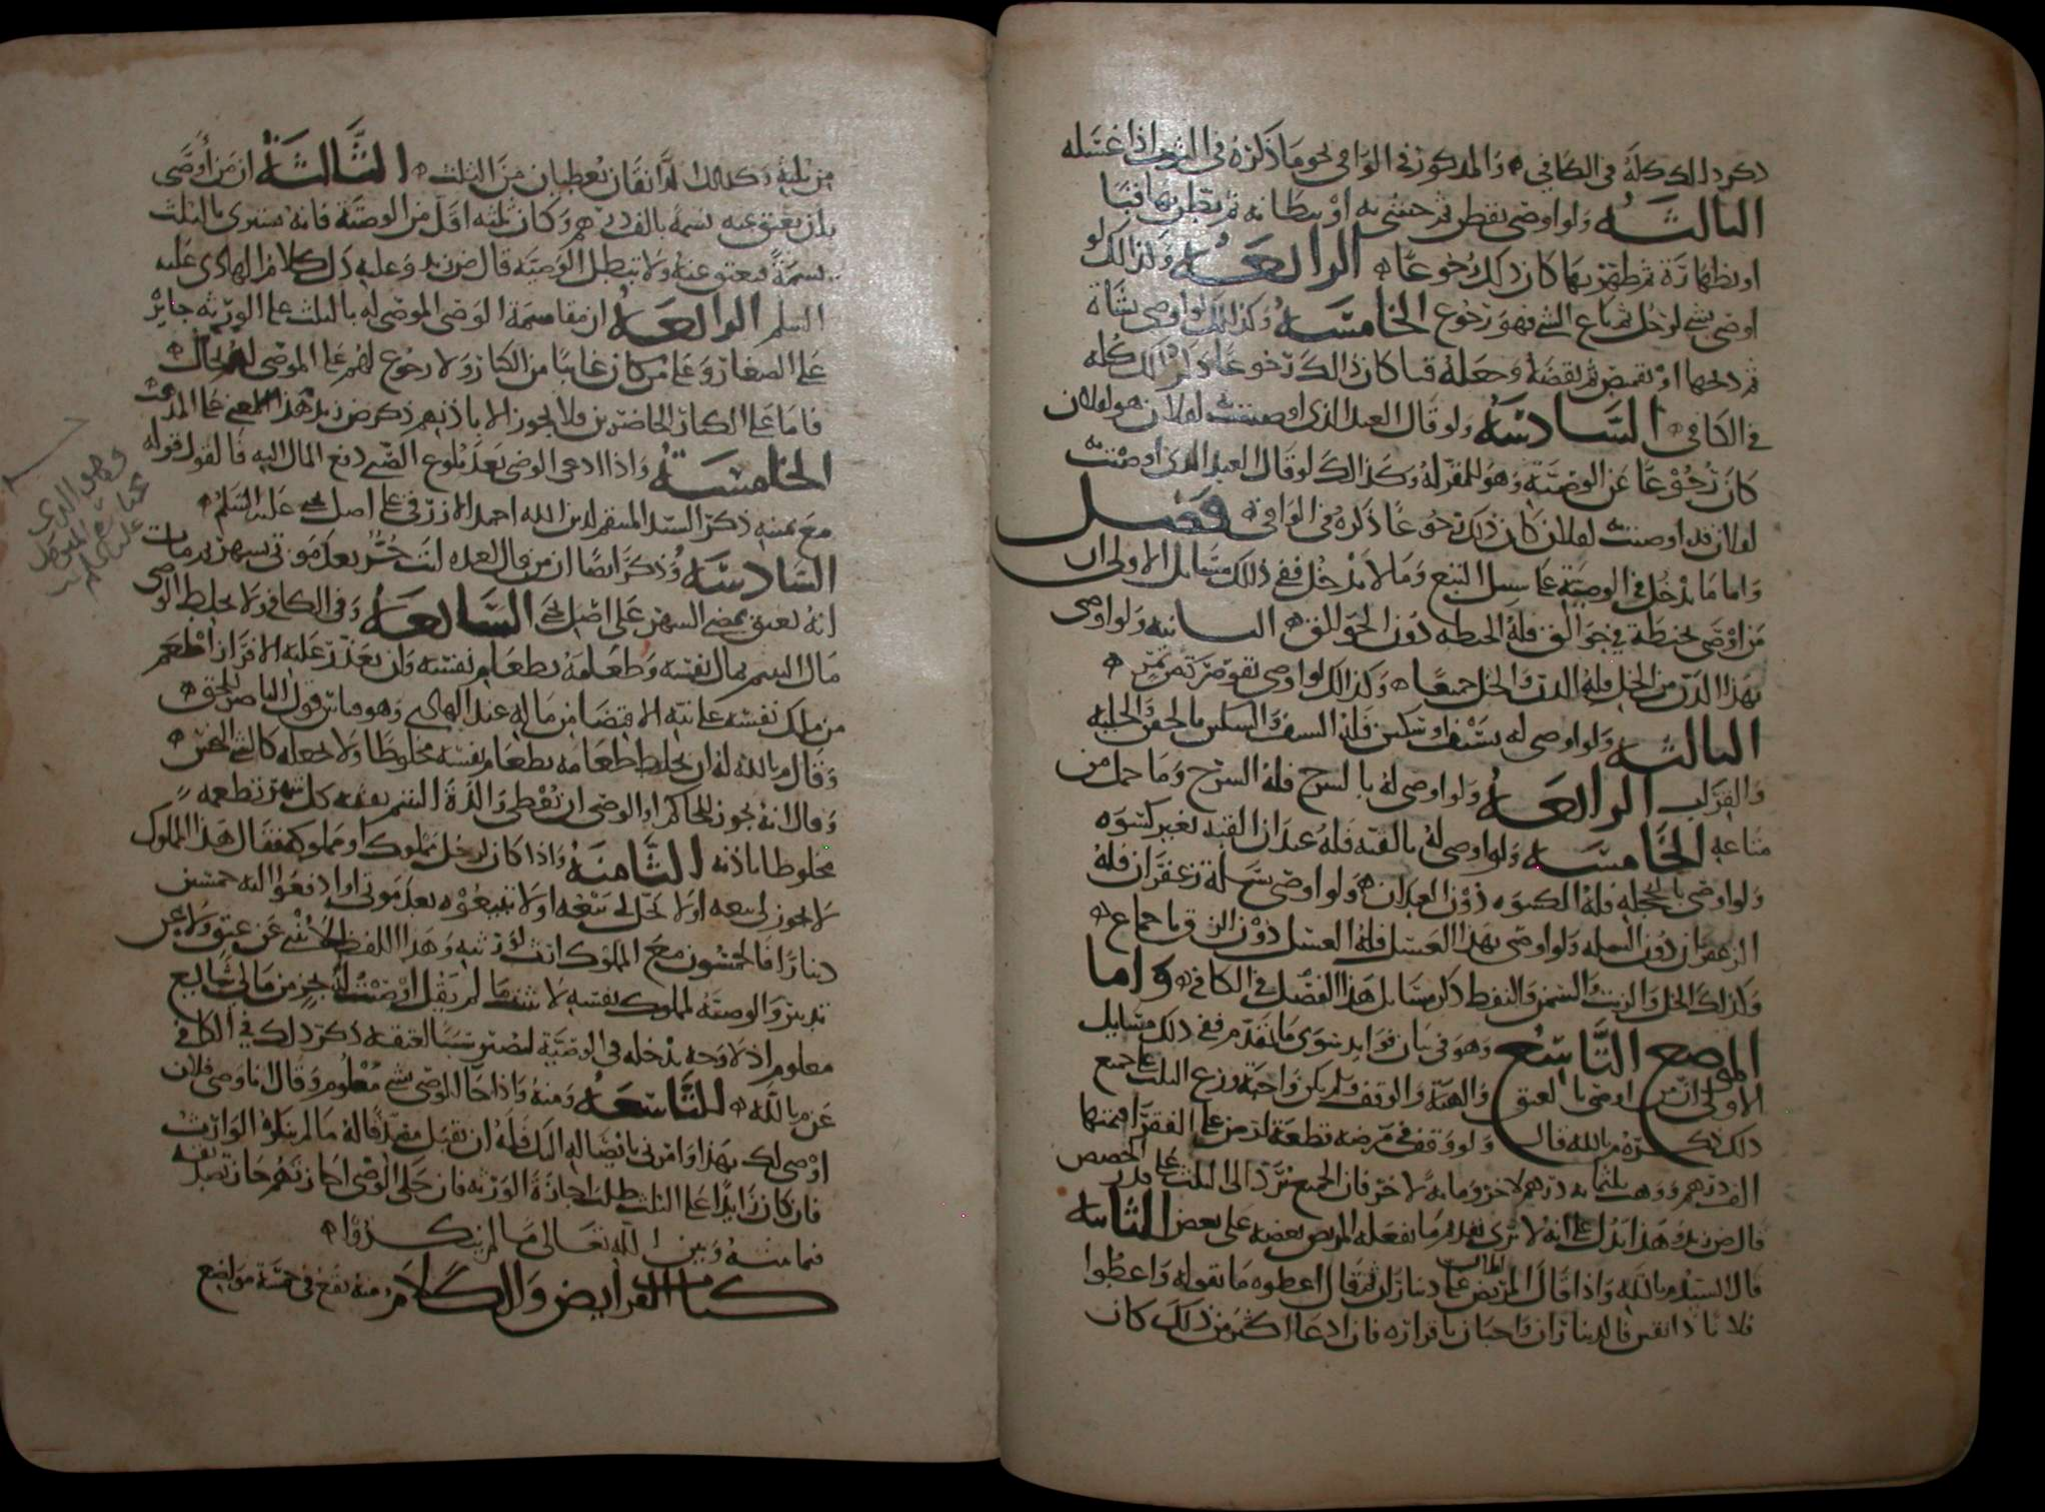 ذكر ذلك كله في الكافي والمذكور في الوافي نحو ما ذكره في الثوب اذا غسله
الثالثة ولو اوصى بقطن ثم حشى به او بطانة ثم بطن بها قبا
او بظهارة ثم ظهر بها كان ذلك رجوعا الرابعة وكذلك لو
اوصى بشي لرجل ثم باع الشي فهو رجوع الخامسة وكذلك لو اوصى بشاة
ثم ذبحها او بقميص ثم نقضه وجعله قبا كان ذلك رجوعا ذكر ذلك كله
في الكافي السادسة ولو قال العبد الذي اوصيت به لفلان هو لفلان
كان رجوعا عن الوصية وهو للمقر له وكذلك لو قال العبد الذي اوصيت به
لفلان قد اوصيت به لفلان كان ذلك رجوعا ذكره في الوافي فصل
واما ما يدخل في الوصية على سبيل التبع وما لا يدخل ففي ذلك مسايل الاولى ان
من اوصى بحنطة في جوالق فله الحنطة دون الجوالق الثانية ولو اوصى
بهذا الدن من الخل فله الدن والخل جميعا وكذلك لو اوصى بقوصرة تمر
الثالثة ولو اوصى له بسيف او سكين فله السيف والسكين بالجفن والحلية
والقراب الرابعة ولو اوصى له بالسرج فله السرج وما حمل من
متاعه الخامسة ولو اوصى له بالقبة فله عيدان القبة بغير كسوة
ولو اوصى بالحجلة فله الكسوة دون العيدان ولو اوصى بسلة زعفران فله
الزعفران دون السلة ولو اوصى بهذا العسل فله العسل دون الزق بالاجماع
وكذلك الخل والزيت والسمن والنفط ذكر مسايل هذا الفصل في الكافي واما
الموضع التاسع وهو في بيان فوايد سوى ما تقدم ففي ذلك مسايل
الاولى ان من اوصى بالعتق والهبة والوقف ولم يكن واجبة وزع الثلث على جميع
ذلك ذكره م بالله قال ولو وقف في مرضه قطعة ارض على الفقرا قيمتها
الف درهم ووهب ثلثماية درهم لاخر وماية لاخر فان الجميع يرد الى الثلث على قدر الحصص
قال ض زيد وهذا يدل على انه لا يرى تقديم ما يفعله المريض بعضه على بعض الثانية
قال السيد م بالله واذا قال المريض علي لفلان ديناران ثم قال اعطوه ما يقوله واعطوا
فلانا دانقين فالديناران واجبان باقراره فان ادعا اكثر من ذلك كان
من ثلثه وكذلك الدانقان يعطيان من الثلث الثالثة ان من اوصى
بان يعتق عنه نسمة بالف درهم وكان ثلثه اقل من الوصية فانه يشترى بالثلث
نسمة فيعتق عنه ولا تبطل الوصية قال ض زيد وعليه دل كلام الهادي عليه
السلم الرابعة ان مقاسمة الوصي الموصى له بالثلث على الورثة جايز
على الصغار وعلى من كان غايبا من الكبار ولا رجوع لهم على الموصى له بحال
فاما على الكبار الحاضرين فلا يجوز الا باذنهم ذكر ض زيد هذا المعنى على المذهب
الخامسة واذا ادعى الوصي بعد بلوغ الصبي دفع المال اليه فالقول قوله
مع يمينه ذكر السيد المنتقم لدين الله احمد الازرقي على اصل يحيى عليه السلم
السادسة وذكر ايضا ان من قال لعبده انت حر بعد موتي بشهر ثم مات
انه يعتق بمضي الشهر على اصل يحيى السابعة وفي الكافي ولا يخلط الوصي
مال اليتيم بمال نفسه وطعامه بطعام نفسه وان تعذر عليه الافراز اطعم
من ملك نفسه على نية الاقتضا من ماله عند الهادي وهو قياس قول الناصر للحق
وقال م بالله له ان يخلط طعامه بطعام نفسه مخلوطا ولا يجعله كالشي المعين
وقال انه يجوز للحاكم او الوصي ان يعطي والدة اليتيم نفقة كل شهر تطعمه
مخلوطا باذنه الثامنة واذا كان لرجل مملوك او مملوكة فقال هذا المملوك
لا يجوز لي بيعه او لا يحل لي بيعه او لا تبيعوه بعد موتي او ادفعوا اليه خمسين
دينارا فالخمسون مع المملوك ارث لورثته وهذا اللفظ لا ينبي عن عتق ولا عن
تدبير والوصية لمملوك نفسه لا تثبت ما لم يقل اوصيت له بجزء من مالي شايع
معلوم اذ لا وجه يدخله في الوصية ليصير سببا لعتقه ذكر ذلك في الكافي
عن م بالله التاسعة ومنه واذا جا الموصي بشي معلوم وقال انا وصي فلان
اوصى لك بهذا وامرني بايصاله اليك فله ان يقبل منه ما قاله ما لم ينكره الوارث
فان كان زايدا على الثلث طلب اجازة الورثة فان حكى الوصي اجازتهم جاز تصديقه
فيما بينه وبين الله تعالى ما لم ينكروا
كتاب الفرايض والكلام منه يقع في خمسة مواضع